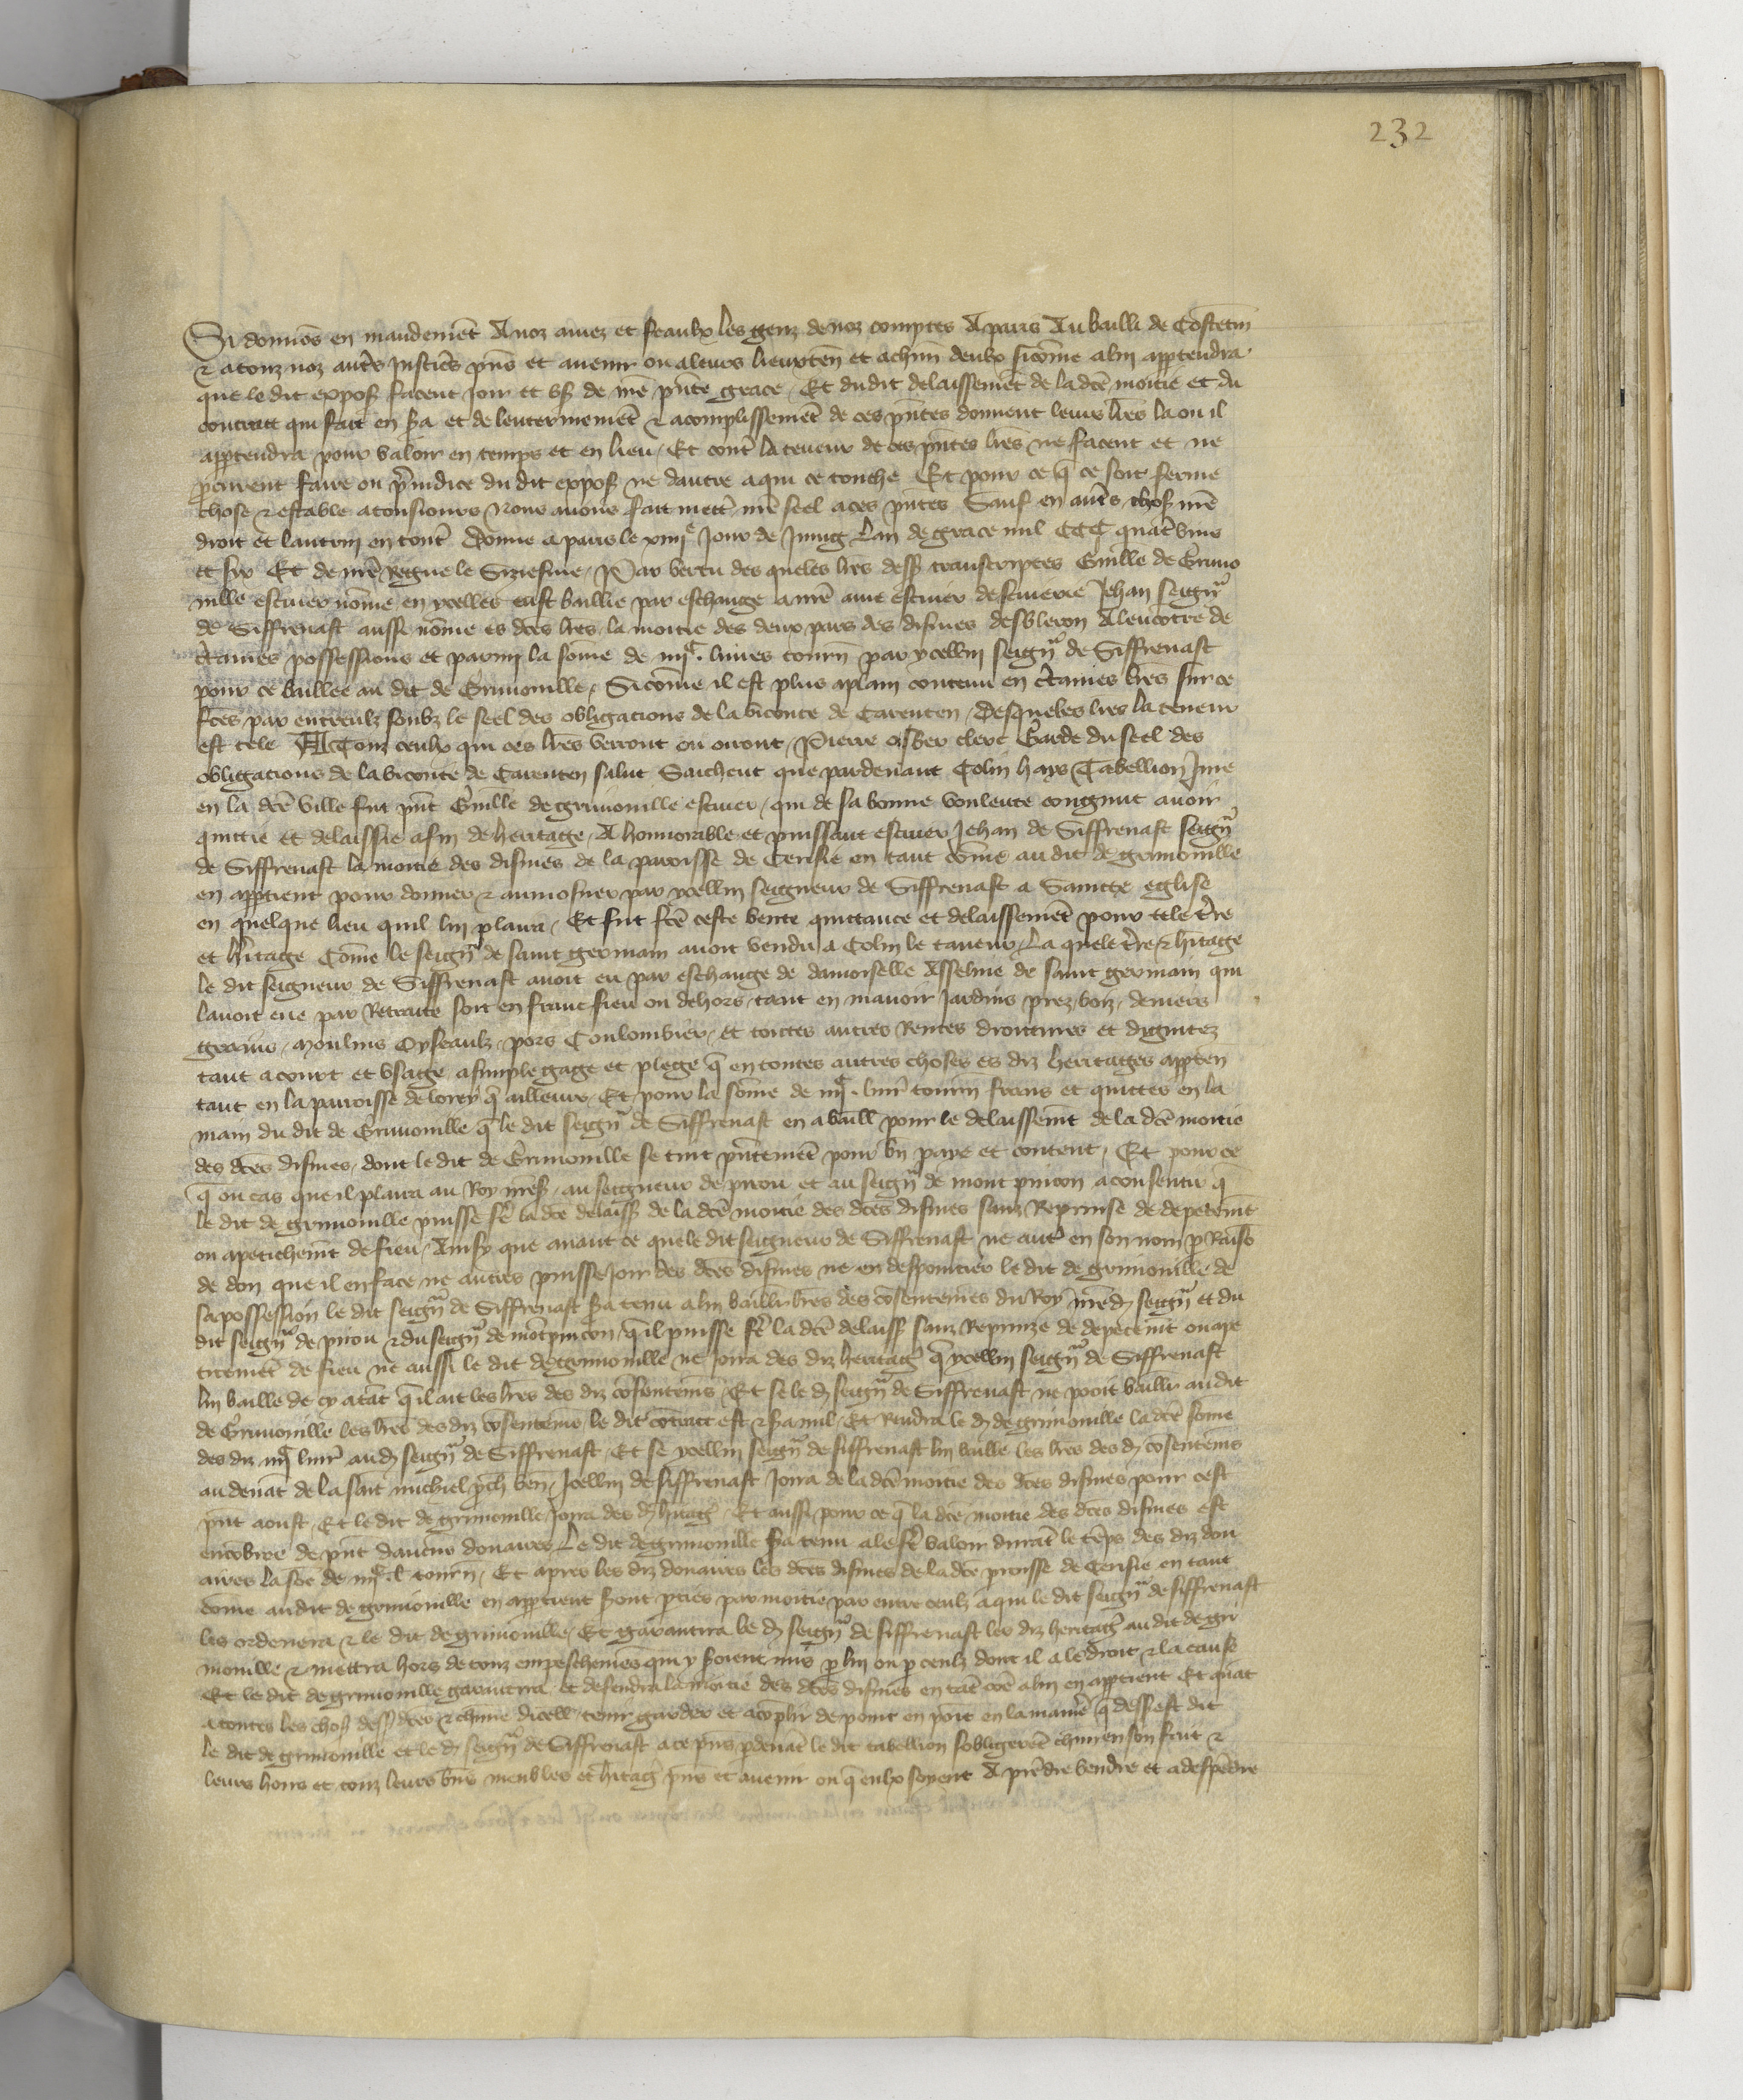 232
Si donnōs en mandemēt A noz amez et feaulx les genz de noz comptes A paris Au bailli de Costetin
& a touz noz aut̄s justic̄s pn̄s et avenir ou a leurs lieuxten̄ et a chūn deulx sicōme a lui app̄tendra
que le dit expos̄ facent joir et us̄ de nr̄e pn̄te grace. Et du dit delaissemēt de la dc̄e moitié et du
contract qui fait en s̄a et de lenterinemēt & acomplissemēt de ces pn̄tes donnent leurs lr̄es la ou il
app̄tendra pour valoir en temps et en lieu. Et cont̄ la teneur de ces pn̄tes lr̄es ne facent et ne
p̄curent faire ou p̄iudice du dit expos̄ ne dautre a qui ce touche Et pour ce q̄ ce soit ferme
chose & estable a tousiours Nous avons fait mett̄ nr̄e seel a ces pn̄tes Sauf en aut̄s chos̄ nr̄e
droit et lautrui en tout̄ Donne a paris le xiiij̄e jour de Juing Lan de grace mil CCC quat̄vins
et six Et de nr̄e Regne le Siziesme, Par vertu des queles lr̄es dess̄ transcriptes Guill̄e de Grimo
uille escuier nōme en ycelles eust baillie par eschange a nr̄e ame escuier descuierie Jehan seign̄r
de Siffrevast aussi nōme es dc̄es lr̄es, la moitie des deux pars des dismes A lencōtre de
c̄taines possessions et parmi la sōme de iiijc. livres tourn̄ par ycellui seign̄r de Siffrevast
pour ce baillee au dit de Grimouille, Sicōme il est plus aplain contenu en c̄taines lr̄es sur ce
fc̄es par entreulx soubz le seel des obligacions de la viconte de Carenten, Desqueles lr̄es la teneur
est tele A Touz ceulx qui ces lr̄es verront ou orront, Pierre osber clerc Garde du seel des
obligacions de la viconte de Carenten salut Saichent que pardevant Colin hays Tabellion Jure
en la dc̄e ville fut pn̄t Guill̄e de grimouille escuier, qui de sa bonne voulente congnut avoir
quittie et delaissie afin de heritage, A honnorable et puissant escuier Jehan de Siffrevast seign̄r
de Siffrevast la moitie des dismes de la paroisse de Cerisie en tant cōme au dit de grimouille
en app̄tient pour donner & aumosner par ycellui seigneur de Siffrevast a Saincte eglise
en quelque lieu quil lui plaira, Et fut fc̄e ceste vente quittance et delaissemēt pour tele t̄re
et h̄itage Cōme le seign̄r de saint germain avoit vendu a Colin le taneur, La quele t̄re & h̄itage
le dit seigneur de Siffrevast avoit eu par eschange de damoiselle Asseline de saint germain qui
lavoit eue par Retraite soit en franc fieu ou dehors, tant en manoir Jardins prez, boiz, deniers
grains, Moulins Oyseaulx, pors Coulombier, et toutes autres Rentes droitures et dignitez
tant a court et usage a simple gage et plege q̄ en toutes autres choses es diz heritages app̄ten
tant en la parroisse de lorey q̄ ailleurs, Et pour la sōme de iiijc. livr̄ tourn̄ frans et quittes en la
main du dit de Grimouille q̄ le dit seign̄r de Siffrevast en a baill̄ pour le delaissem̄t de la dc̄e moitie
des dc̄es dismes, dont le dit de Grimouille se tint pn̄temēt pour bn̄ paye et content, Et pour ce
q̄ ou cas que il plaira au Roy nr̄es̄, au seigneur de pirou et au seign̄r de mont pincon a consentir q̄
le dit de grimouille puisse fē la dc̄e delaiss̄ de la dc̄e moitie des dc̄es dismes sanz Reprinse de depecem̄t
ou apetichem̄t de fieu, Ainsy que avant ce que le dit seigneur de Siffrevast ne aut̄ en son nom p̄ Raisō
de don que il en face ne autres puisse joir des dc̄es dismes ne en despoinctier le dit de grimouille de
sa possession le dit seign̄r de Siffrevast s̄a tenu a lui baill̄ lr̄es des cōsentem̄s du Roy nr̄e d̄ seign̄r et du
dit seign̄r de pirou & du seign̄r de mōtpincon, q̄ il puisse fē la dc̄e delaiss̄ sanz Reprinze de depecem̄t ou ape
ticemēt de fieu ne aussi le dit de grimouille ne jorra des diz heritaḡ q̄ ycellui seign̄r de Siffrevast
lui baille de cy atāt q̄ il ait les lr̄es des diz cōsentem̄s, Et se le d̄ seign̄r de Siffrevast ne pooit baill̄ au dit
de Grimouille les lr̄es des diz cōsentem̄s, le dit cōtract est & s̄a nul, Et Rendra le d̄ de grimouille la dc̄e sōme
des diz iiijc livr̄ aud̄ seign̄r de Siffrevast, Et se ycellui seign̄r de siffrevast lui baille les lr̄es des d̄ cōsentem̄s
au devāt de la saīt michiel p̄ch ven̄, Icellui de siffrevast jorra de la dc̄e moitie des dc̄es dismes pour cest
pn̄t aoust, Et le dit de grimouille jorra des d̄ h̄itaḡ Et aussi pour ce q̄ la dc̄e moitie des dc̄es dismes est
encōbree de pn̄t daucūs douaires Le dit de grimouille s̄a tenu a le fē valoir durāt le tēps des diz dou
aires la sōe de iiijc. l. tourn̄, Et apres les diz douaires les dc̄es dismes de la dc̄e p̄roisse de Cerisie en tant
cōme au dit de grimouille en app̄tient s̄ont p̄ties par moitie par entre ceulx a qui le dit seign̄r de siffrevast
les ordenera & le dit de grimouille, Et garantira le d̄ seign̄r de siffrevast les diz heritaḡ au dit de gri
mouille & mettra hors de touz empeschemēs qui y s̄oient mis p̄ lui ou p̄ ceulx dont il a le droit & la cause
Et le dit de grimouille garantira et defendra la moitie des dc̄es dismes en tāt cōe a lui en app̄tient Et quāt
a toutes les chos̄ dess̄ dc̄es & chūne dicell̄ tenir garder et acōplir de point en point en la manie̅ q̄ dess̄ est dit
le dit de grimouille et le d̄ seign̄r de Siffrevast a ce pn̄s p̄devāt le dit tabellion sobligerēt chūn en son fait &
leurs hoirs et touz leurs bn̄s meubles et h̄itaḡ pn̄s et avenir ou q̄ eulx soyent A prēdre vendre et a despēdre